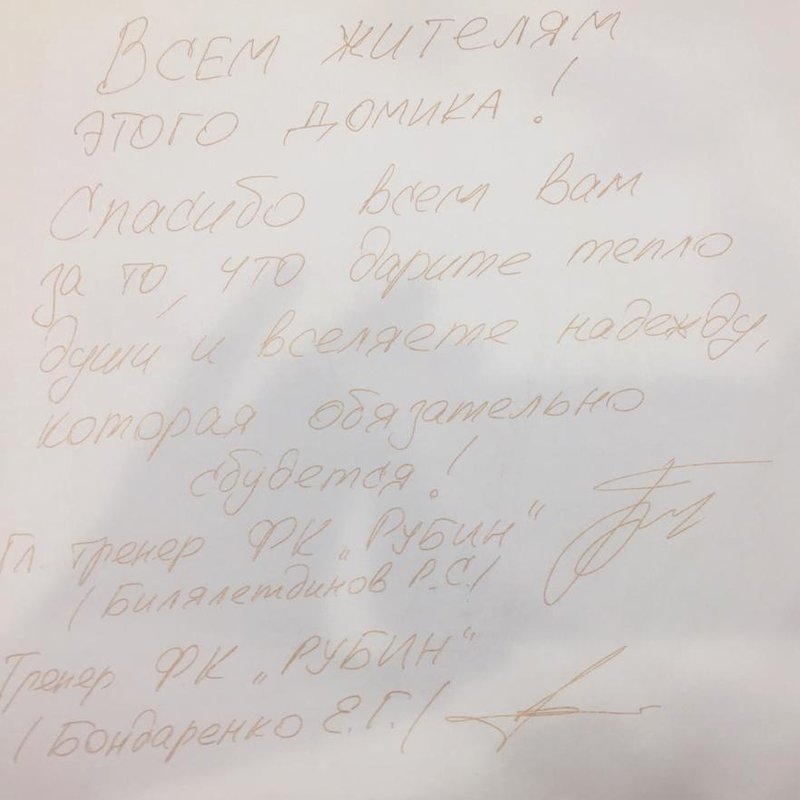 Всем жителям
этого домика!
Спасибо всем вам
за то, что дарите тепло
души и вселяете надежду,
которая обязательно
сбудется!
Гл. тренер ФК „Рубин“
/Билялетдинов Р.С./
Тренер ФК „РУБИН“
/Бондаренко Е.Г./